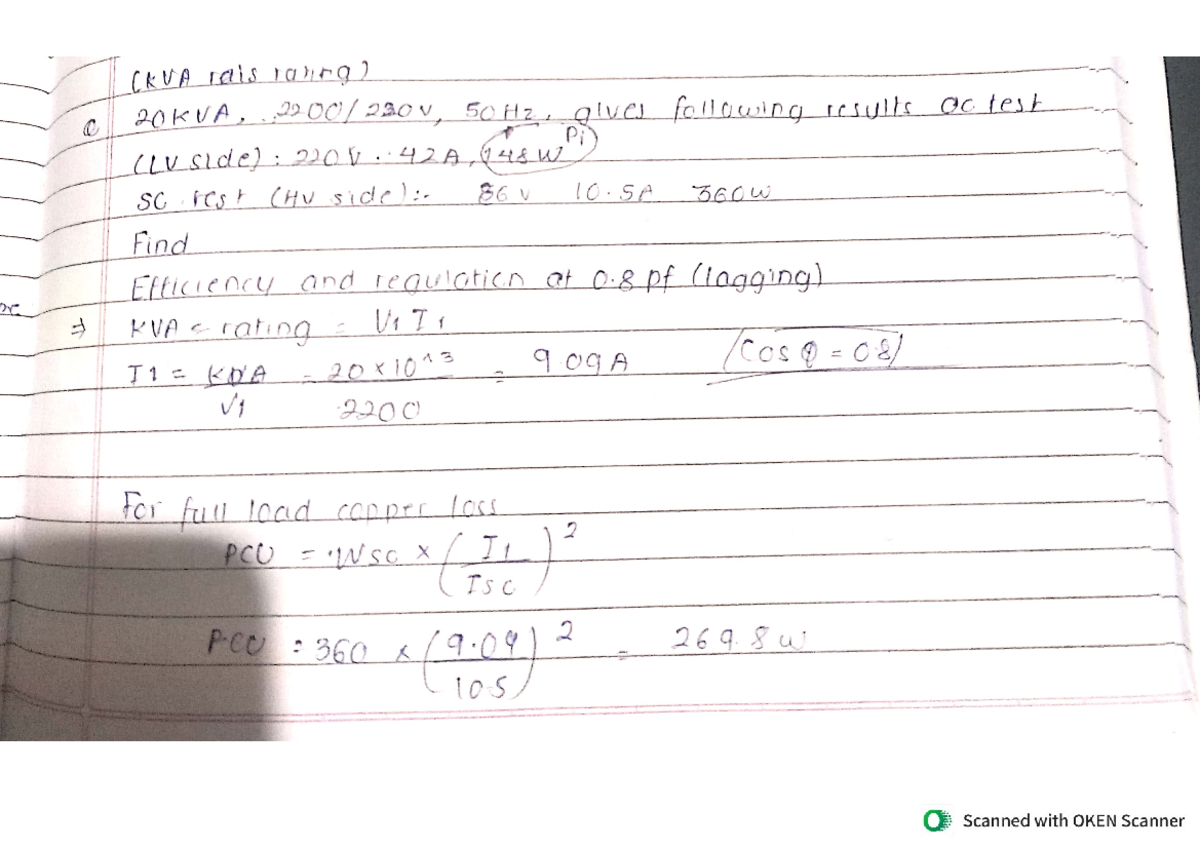 (KVA rais raing)
Q 20KVA, 2200/220V, 50Hz, gives following results oc test
(LV side) : 220V . 4.2A, 148W Pi
SC test (HV side):- 86V 10.5A 360W
Find
Efficiency and regulation at 0.8 pf (lagging)
⇒ KVA rating = V1 I1
I1 = KVA / V1 = 20 × 10^3 / 2200 = 9.09A (cos φ = 0.8)
For full load copper loss
PCU = WSC × (I1 / ISC)²
PCU = 360 × (9.09 / 10.5)² = 269.8 W
Scanned with OKEN Scanner